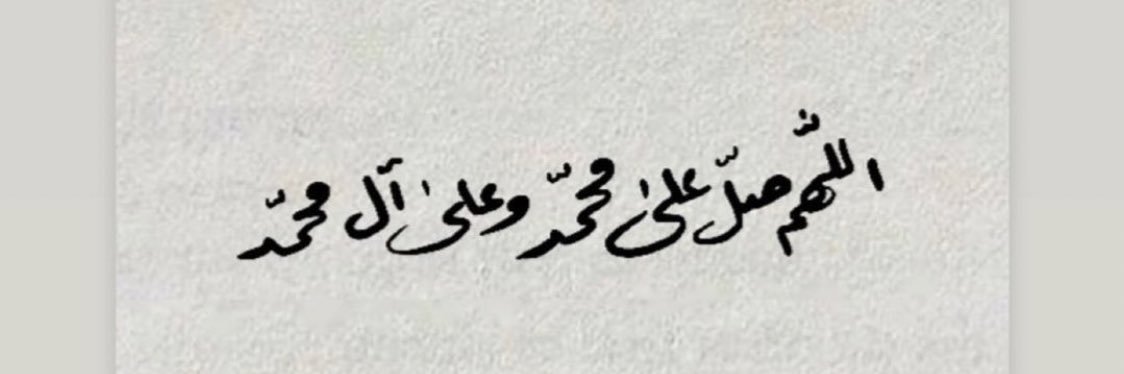 اللّهم صلّ على محمّد وعلى آل محمّد